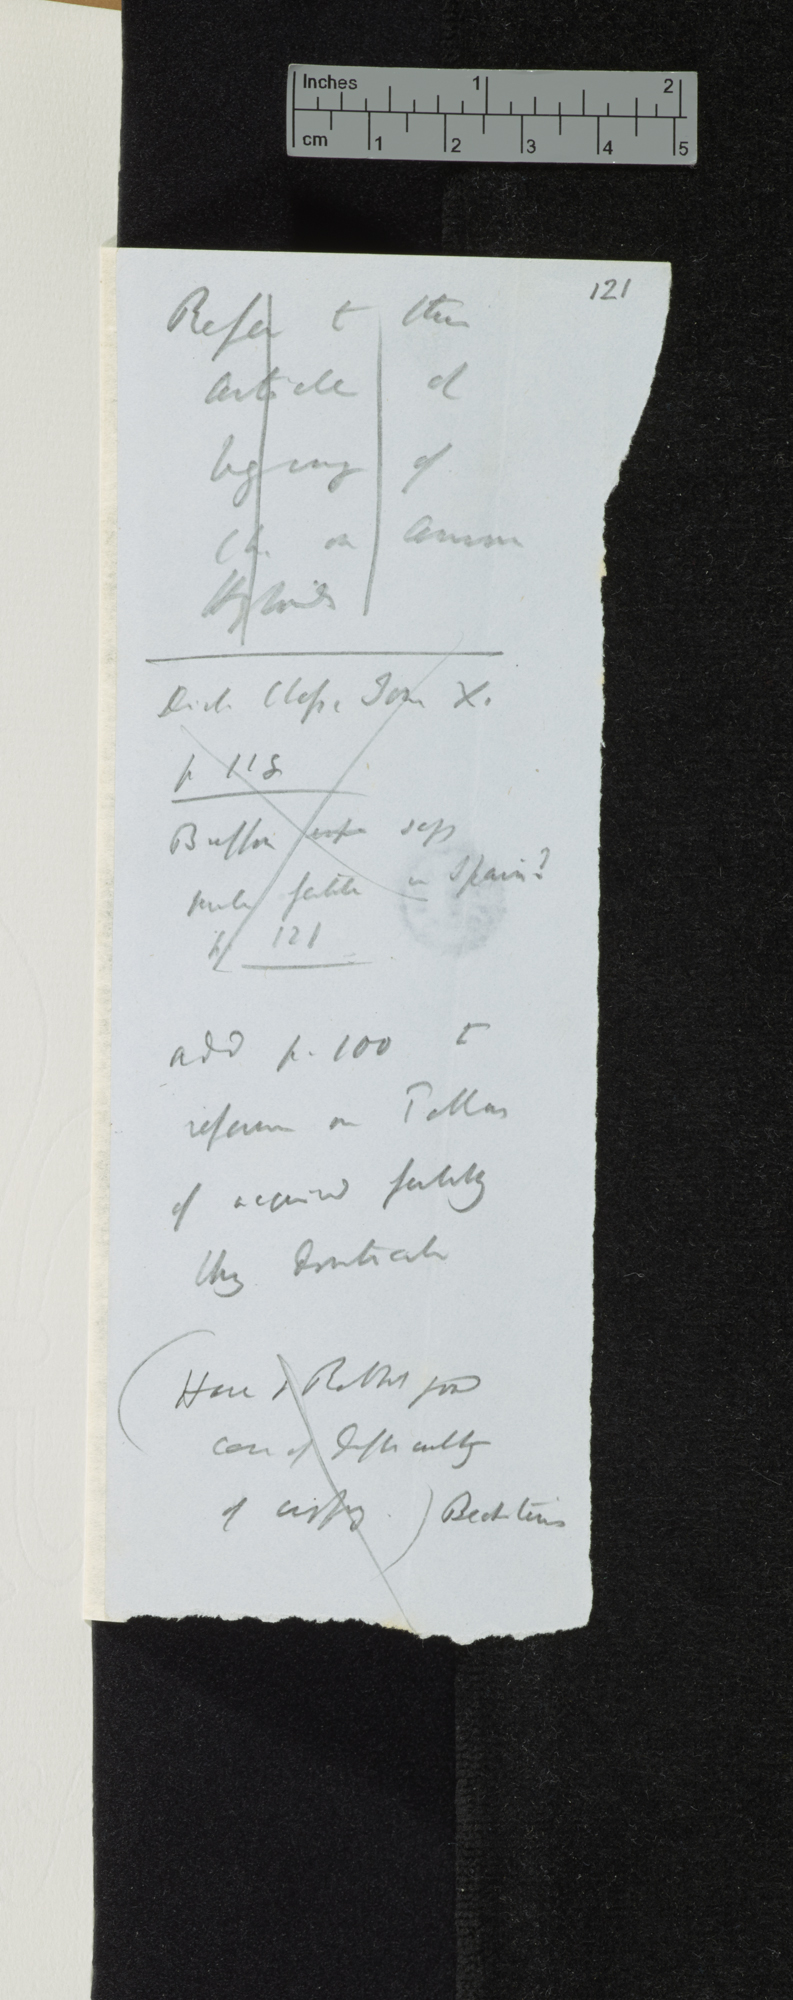 Inches 1 2
cm 1 2 3 4 5
121
Refer to this
article at
beginning of
Ch. on Animal
Hybrids
Dict. Class. Tom X.
p 118
Buffon says
mule fertile in Spain?
p 121
add p. 100 to
reference on Pallas
of acquired fertility
thro' domestication
(Hare & Rabbit good
case of difficulty
of crossing.) Bechstein